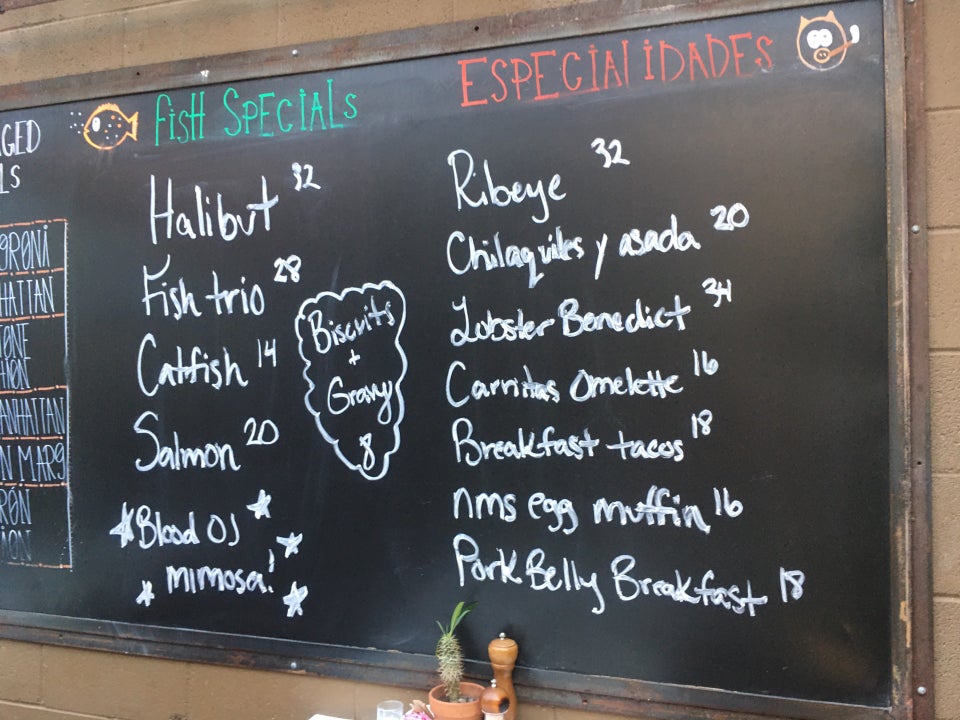 GED
LS
GRONI
HATTAN
ANHATTAN
N MARG
RON
FISH SPECIALS
Halibut 32
Fish trio 28
Catfish 14
Salmon 20
Blood OJ
mimosa!
Biscuits
+
Gravy
8
ESPECIALIDADES
Ribeye 32
Chilaquiles y asada 20
Lobster Benedict 34
Carnitas Omelette 16
Breakfast tacos 18
nms egg muffin 16
Pork Belly Breakfast 18